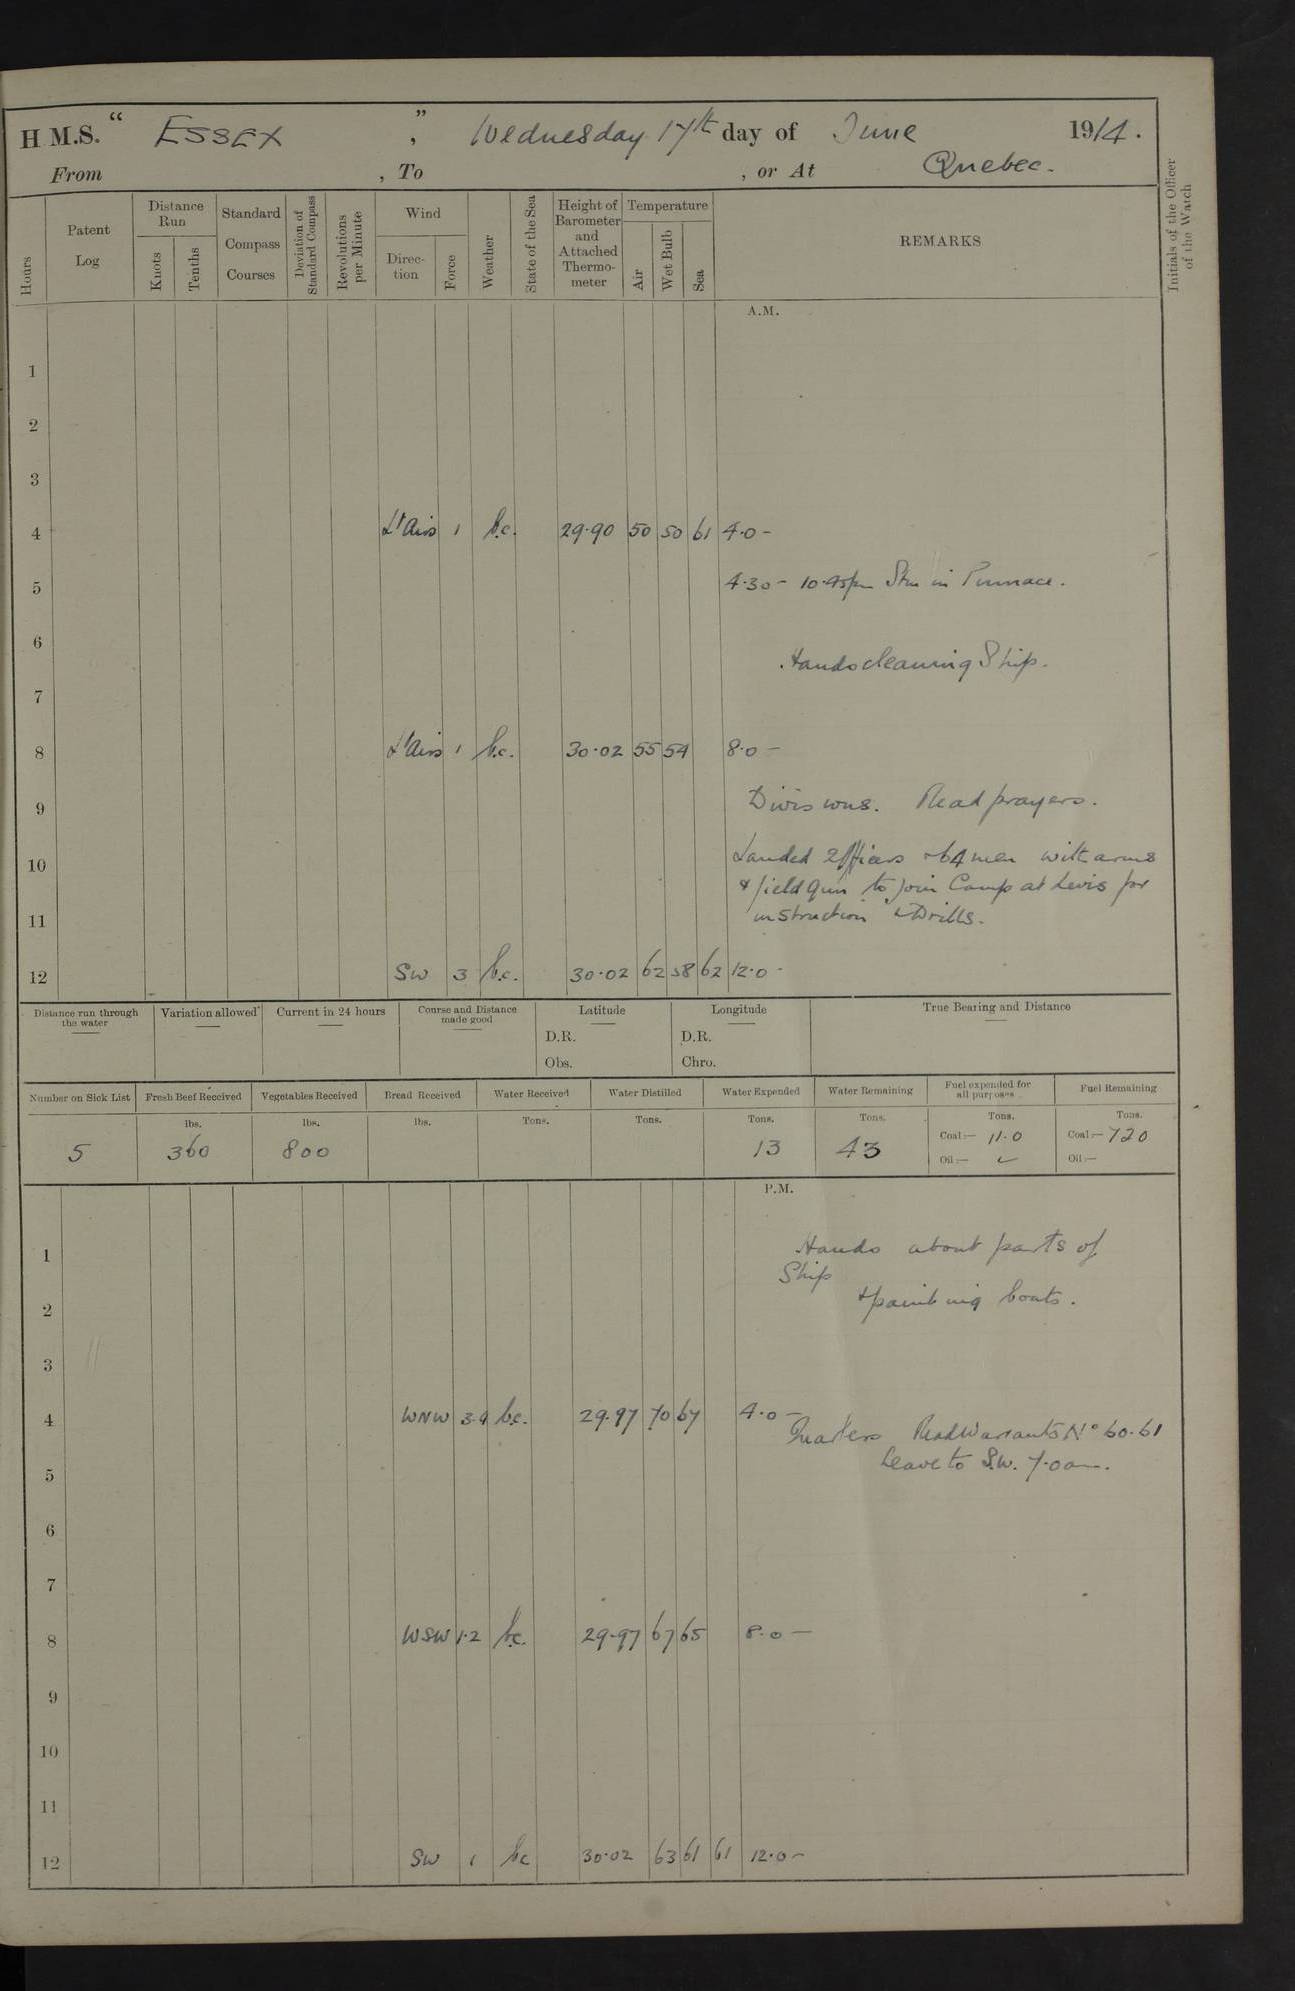 H M.S. “ ESSEX ”, Wednesday 17th day of June 1914.
From , To , or At Quebec.
Hours
Patent Log
Distance Run
Knots
Tenths
Standard Compass Courses
Deviation of Standard Compass
Revolutions per Minute
Wind
Direction
Force
Weather
State of the Sea
Height of Barometer and Attached Thermometer
Temperature
Air
Wet Bulb
Sea
REMARKS
Initials of the Officer of the Watch
A.M.
1
2
3
4 Lt Airs 1 b.c. 29.90 50 50 61 4.0 -
5 4.30 - 10.45pm Stm in Pinnace.
6
Hands cleaning Ship.
7
8 Lt Airs 1 b.c. 30.02 55 54 8.0 -
9 Divisions. Read prayers.
10 Landed 2 Officers + 64 men with arms
& field Gun to join Camp at Levis for
11 instruction & Drills.
12 SW 3 b.c. 30.02 62 58 62 12.0 -
Distance run through the water
Variation allowed
Current in 24 hours
Course and Distance made good
Latitude
D.R.
Obs.
Longitude
D.R.
Chro.
True Bearing and Distance
Number on Sick List Fresh Beef Received Vegetables Received Bread Received Water Received Water Distilled Water Expended Water Remaining Fuel expended for all purposes Fuel Remaining
lbs. lbs. lbs. Tons. Tons. Tons. Tons. Tons. Tons.
5 360 800 13 43 Coal:— 11.0 Coal:— 720
Oil:— Oil:—
P.M.
1 Hands about parts of
Ship
2 & painting boats.
3
4 WNW 3.4 b.c. 29.97 70 67 4.0 -
Quarters Read Warrants No 60.61
Leave to S.W. 7.0am.
5
6
7
8 WSW 1.2 b.c. 29.97 67 65 8.0 —
9
10
11
12 SW 1 bc 30.02 63 61 61 12.0 -